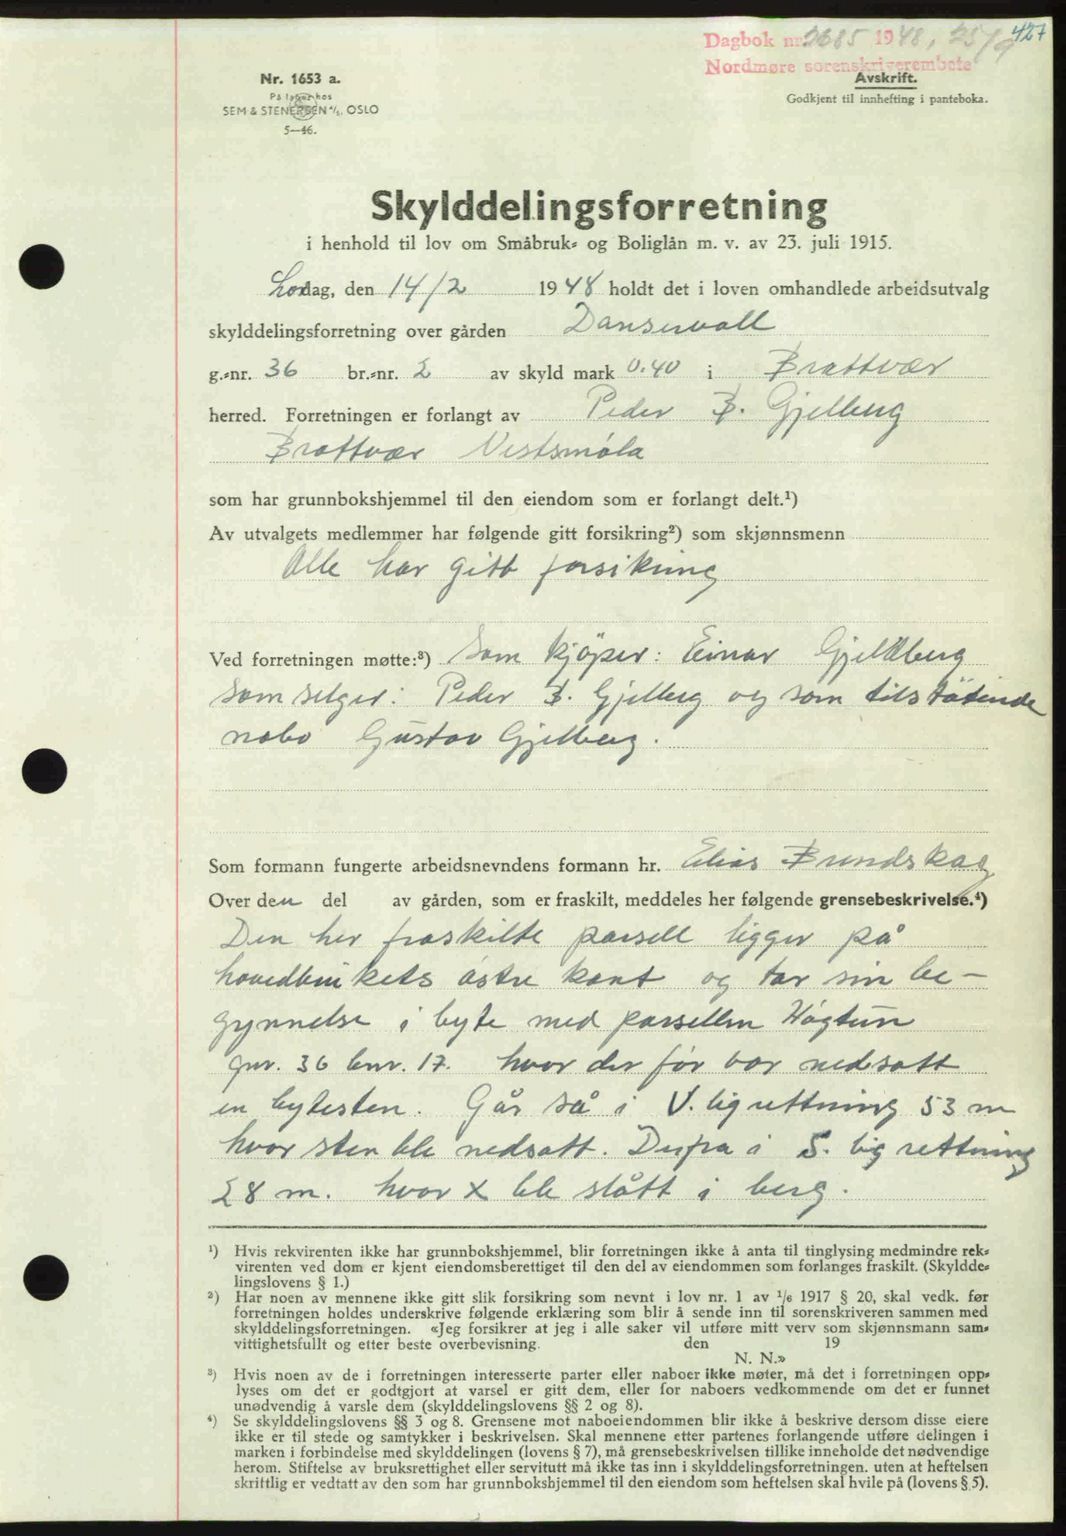 427
Dagbok nr. 2685 1948, 25/9
Nordmøre sorenskriverembete
Nr. 1653 a.
På lager hos
SEM & STENERSEN A/S. OSLO
5—46.
Avskrift.
Godkjent til innhefting i panteboka.
Skylddelingsforretning
i henhold til lov om Småbruk- og Boliglån m. v. av 23. juli 1915.
Lordag, den 14/2 1948 holdt det i loven omhandlede arbeidsutvalg
skylddelingsforretning over gården Danservoll
g.-nr. 36 br.-nr. 2 av skyld mark 0.40 i Brattvær
herred. Forretningen er forlangt av Peder B. Gjelberg
Brattvær Vestsmøla
som har grunnbokshjemmel til den eiendom som er forlangt delt.¹)
Av utvalgets medlemmer har følgende gitt forsikring²) som skjønnsmenn
Alle har gitt forsikring
Ved forretningen møtte:³) Som kjøper: Einar Gjeldberg
som selger: Peder B. Gjelberg og som tilstøtende
nabo Gustav Gjelberg.
Som formann fungerte arbeidsnevndens formann hr. Elias Brundskag
Over den del av gården, som er fraskilt, meddeles her følgende grensebeskrivelse.⁴)
Den her fraskilte parsell ligger på
hovedbrukets østre kant og tar sin be-
gynnelse i byte med parsellen Høgtun
gnr. 36 bnr. 17. hvor der før var nedsatt
en bytesten. Går så i V. lig rettning 53 m
hvor sten ble nedsatt. Derfra i S. lig rettning
28 m. hvor X ble slått i berg.
¹) Hvis rekvirenten ikke har grunnbokshjemmel, blir forretningen ikke å anta til tinglysing medmindre rek-
virenten ved dom er kjent eiendomsberettiget til den del av eiendommen som forlanges fraskilt. (Skyldde-
lingslovens § 1.)
²) Har noen av mennene ikke gitt slik forsikring som nevnt i lov nr. 1 av 1/6 1917 § 20, skal vedk. før
forretningen holdes underskrive følgende erklæring som blir å sende inn til sorenskriveren sammen med
skylddelingsforretningen. «Jeg forsikrer at jeg i alle saker vil utføre mitt verv som skjønnsmann sam-
vittighetsfullt og etter beste overbevisning. den 19
N. N.»
³) Hvis noen av de i forretningen interesserte parter eller naboer ikke møter, må det i forretningen opp-
lyses om det er godtgjort at varsel er gitt dem, eller for naboers vedkommende om det er funnet
unødvendig å varsle dem (skylddelingslovens §§ 2 og 8).
⁴) Se skylddelingslovens §§ 3 og 8. Grensene mot naboeiendommen blir ikke å beskrive dersom disse eiere
ikke er til stede og samtykker i beskrivelsen. Skal mennene etter partenes forlangende utføre delingen i
marken i forbindelse med skylddelingen (lovens § 7), må grensebeskrivelsen tillike inneholde det nødvendige
herom. Stiftelse av bruksrettighet eller servitutt må ikke tas inn i skylddelingsforretningen. uten at heftelsen
skriftlig er vedtatt av den som har grunnbokshjemmel til den eiendom som heftelsen skal hvile på (lovens § 5).